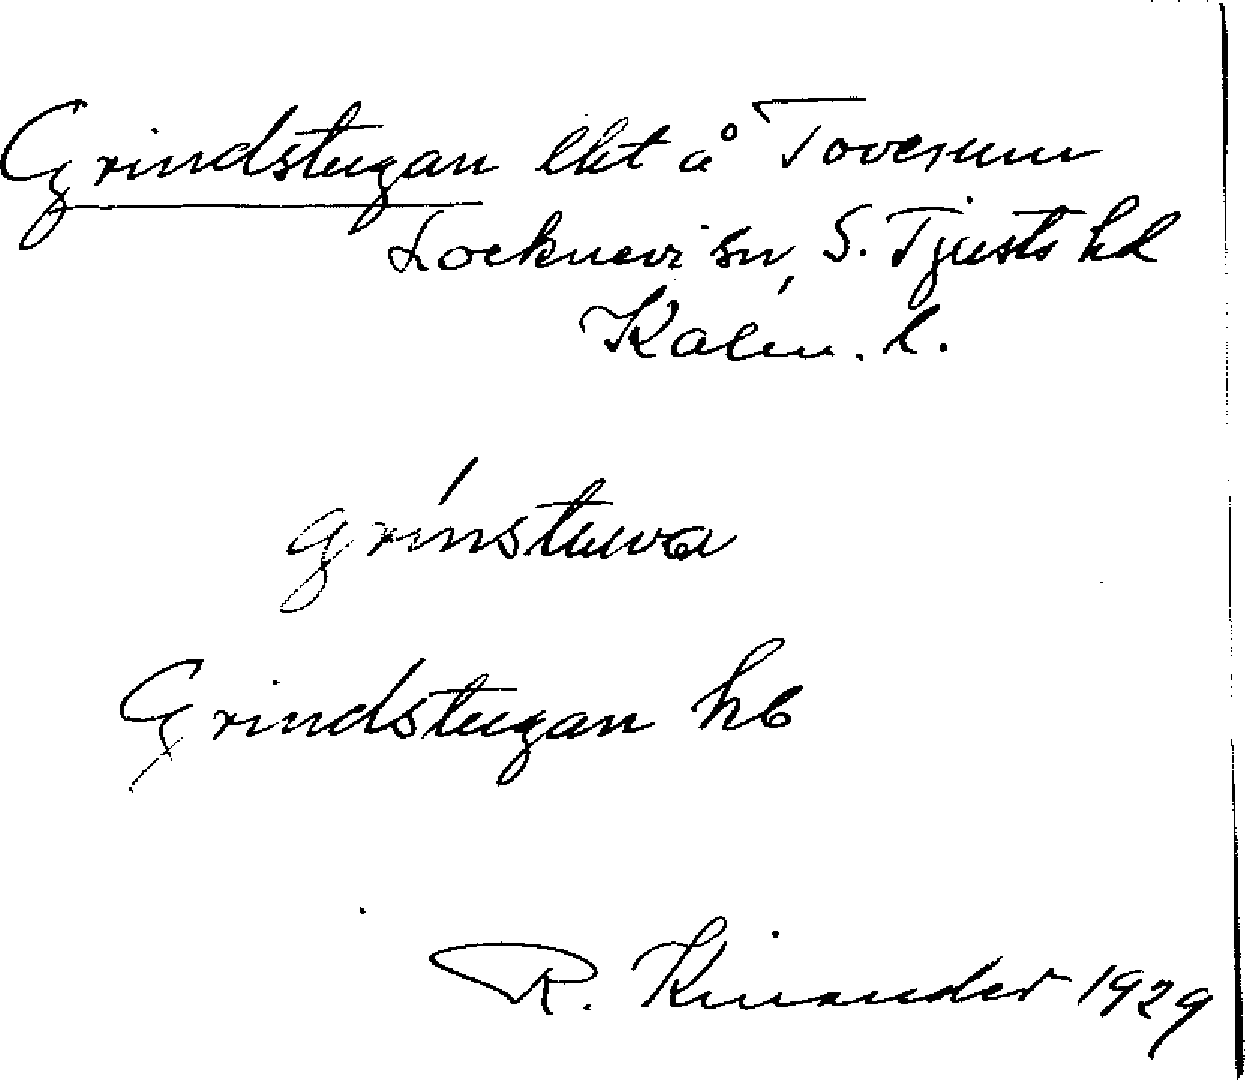 Grindstugan lht å Toverum
Locknevi sn, S. Tjusts hd
Kalm. l.
grinstuwa
Grindstugan hb
R. Kinander 1929